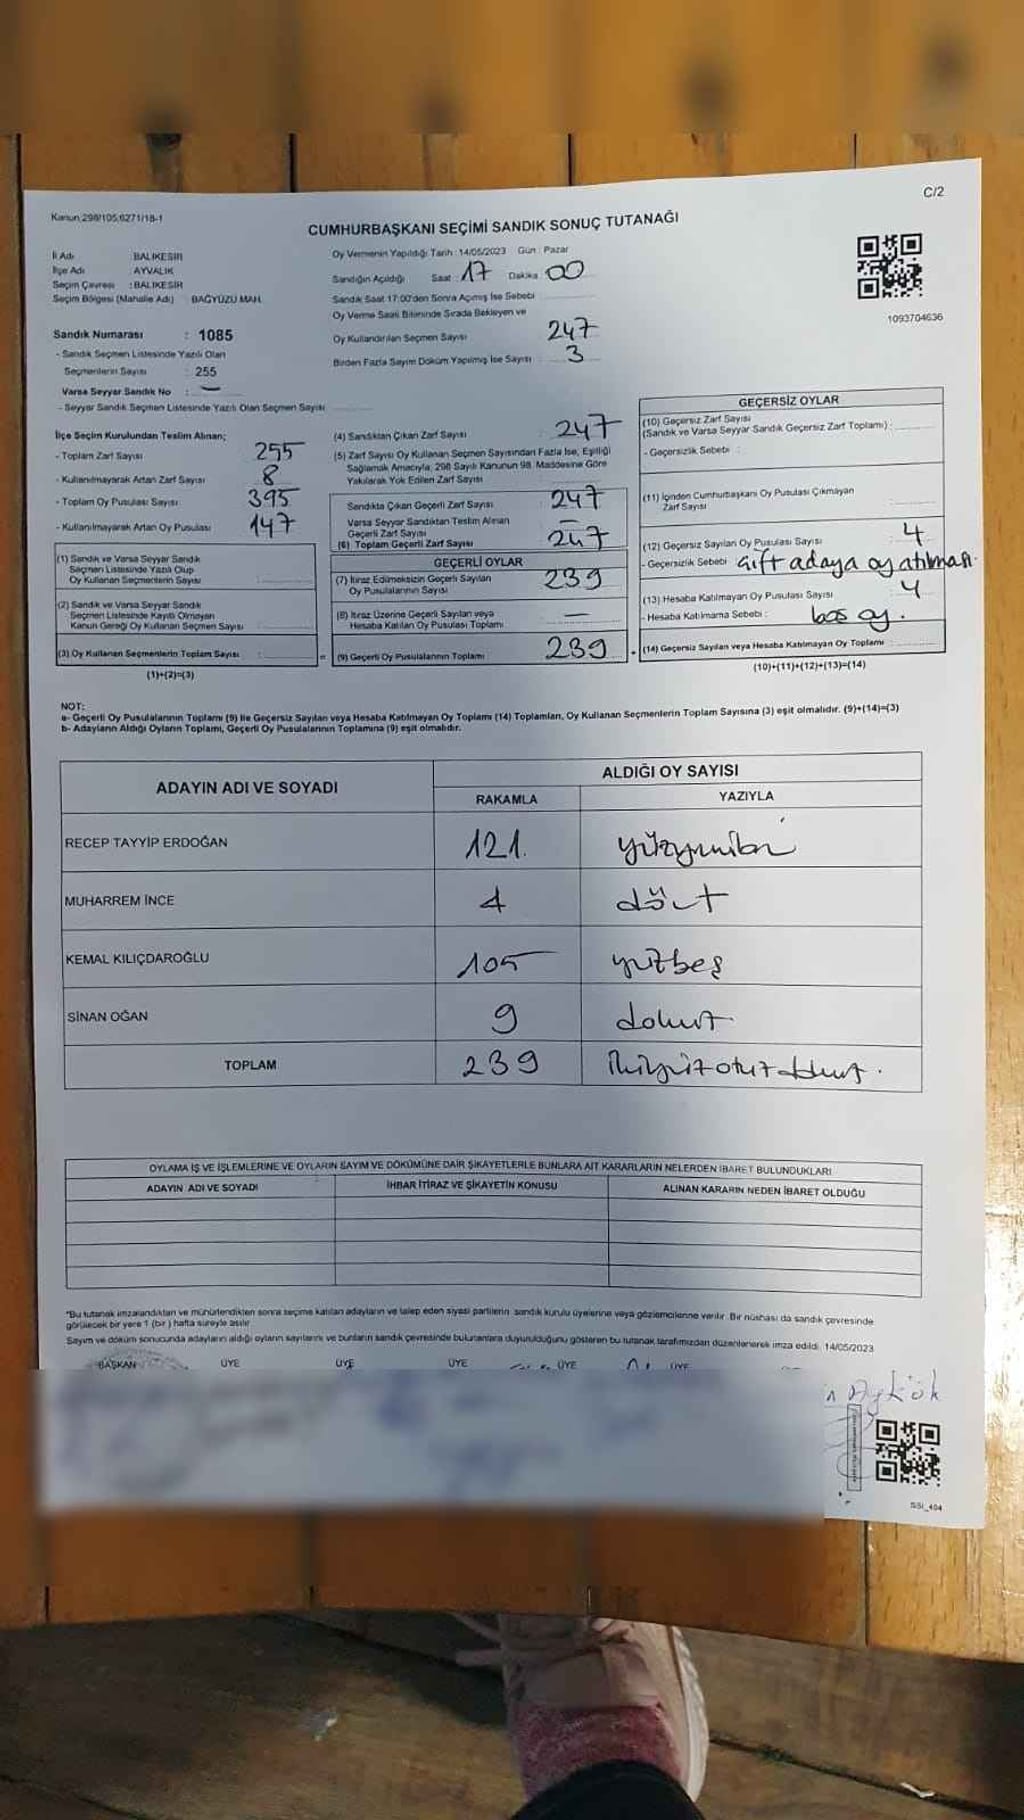 C/2
Kanun:298/105,6271/18-1
CUMHURBAŞKANI SEÇİMİ SANDIK SONUÇ TUTANAĞI
İl Adı BALIKESİR
İlçe Adı AYVALIK
Seçim Çevresi : BALIKESİR
Seçim Bölgesi (Mahalle Adı) BAĞYÜZÜ MAH.
Oy Vermenin Yapıldığı Tarih : 14/05/2023 Gün : Pazar
Sandığın Açıldığı Saat : 17 Dakika : 00
Sandık Saat 17:00'den Sonra Açımış İse Sebebi
Oy Verme Saati Bitiminde Sırada Bekleyen ve
Oy Kullandırılan Seçmen Sayısı 247
Birden Fazla Sayım Döküm Yapılmış İse Sayısı 3
1093704636
Sandık Numarası : 1085
- Sandık Seçmen Listesinde Yazılı Olan
Seçmenlerin Sayısı : 255
Varsa Seyyar Sandık No : —
- Seyyar Sandık Seçmen Listesinde Yazılı Olan Seçmen Sayısı
İlçe Seçim Kurulundan Teslim Alınan;
- Toplam Zarf Sayısı 255
- Kullanılmayarak Artan Zarf Sayısı 8
- Toplam Oy Pusulası Sayısı 395
- Kullanılmayarak Artan Oy Pusulası 147
(1) Sandık ve Varsa Seyyar Sandık
Seçmen Listesinde Yazılı Olup
Oy Kullanan Seçmenlerin Sayısı
(2) Sandık ve Varsa Seyyar Sandık
Seçmen Listesinde Kayıtlı Olmayan
Kanun Gereği Oy Kullanan Seçmen Sayısı
(3) Oy Kullanan Seçmenlerin Toplam Sayısı :
(1)+(2)=(3)
(4) Sandıktan Çıkan Zarf Sayısı 247
(5) Zarf Sayısı Oy Kullanan Seçmen Sayısından Fazla İse, Eşitliği
Sağlamak Amacıyla; 298 Sayılı Kanunun 98. Maddesine Göre
Yakılarak Yok Edilen Zarf Sayısı
Sandıkta Çıkan Geçerli Zarf Sayısı 247
Varsa Seyyar Sandıktan Teslim Alınan
Geçerli Zarf Sayısı —
(6) Toplam Geçerli Zarf Sayısı 247
GEÇERLİ OYLAR
(7) İtiraz Edilmeksizin Geçerli Sayılan
Oy Pusulalarının Sayısı 239
(8) İtiraz Üzerine Geçerli Sayılan veya
Hesaba Katılan Oy Pusulası Toplamı —
= (9) Geçerli Oy Pusulalarının Toplamı 239
GEÇERSİZ OYLAR
(10) Geçersiz Zarf Sayısı
(Sandık ve Varsa Seyyar Sandık Geçersiz Zarf Toplamı) :
- Geçersizlik Sebebi :
(11) İçinden Cumhurbaşkanı Oy Pusulası Çıkmayan
Zarf Sayısı
(12) Geçersiz Sayılan Oy Pusulası Sayısı : 4
- Geçersizlik Sebebi Çift adaya oy atılması.
(13) Hesaba Katılmayan Oy Pusulası Sayısı 4
- Hesaba Katılmama Sebebi : boş oy.
+ (14) Geçersiz Sayılan veya Hesaba Katılmayan Oy Toplamı :
(10)+(11)+(12)+(13)=(14)
NOT:
a- Geçerli Oy Pusulalarının Toplamı (9) İle Geçersiz Sayılan veya Hesaba Katılmayan Oy Toplamı (14) Toplamları, Oy Kullanan Seçmenlerin Toplam Sayısına (3) eşit olmalıdır. (9)+(14)=(3)
b- Adayların Aldığı Oyların Toplamı, Geçerli Oy Pusulalarının Toplamına (9) eşit olmalıdır.
ADAYIN ADI VE SOYADI ALDIĞI OY SAYISI
RAKAMLA YAZIYLA
RECEP TAYYİP ERDOĞAN 121. yüzyirmibir
MUHARREM İNCE 4 dört
KEMAL KILIÇDAROĞLU 105 yüzbeş
SİNAN OĞAN 9 dokuz
TOPLAM 239 ikiyüzotuzdokuz.
OYLAMA İŞ VE İŞLEMLERİNE VE OYLARIN SAYIM VE DÖKÜMÜNE DAİR ŞİKAYETLERLE BUNLARA AİT KARARLARIN NELERDEN İBARET BULUNDUKLARI
ADAYIN ADI VE SOYADI İHBAR İTİRAZ VE ŞİKAYETİN KONUSU ALINAN KARARIN NEDEN İBARET OLDUĞU
*Bu tutanak imzalandıktan ve mühürlendikten sonra seçime katılan adayların ve talep eden siyasi partilerin sandık kurulu üyelerine veya gözlemcilerine verilir. Bir nüshası da sandık çevresinde
görülecek bir yere 1 (bir) hafta süreyle asılır.
Sayım ve döküm sonucunda adayların aldığı oyların sayılarını ve bunların sandık çevresinde bulunanlara duyurulduğunu gösteren bu tutanak tarafımızdan düzenlenerek imza edildi. 14/05/2023
BAŞKAN ÜYE ÜYE ÜYE ÜYE ÜYE
SSI_404